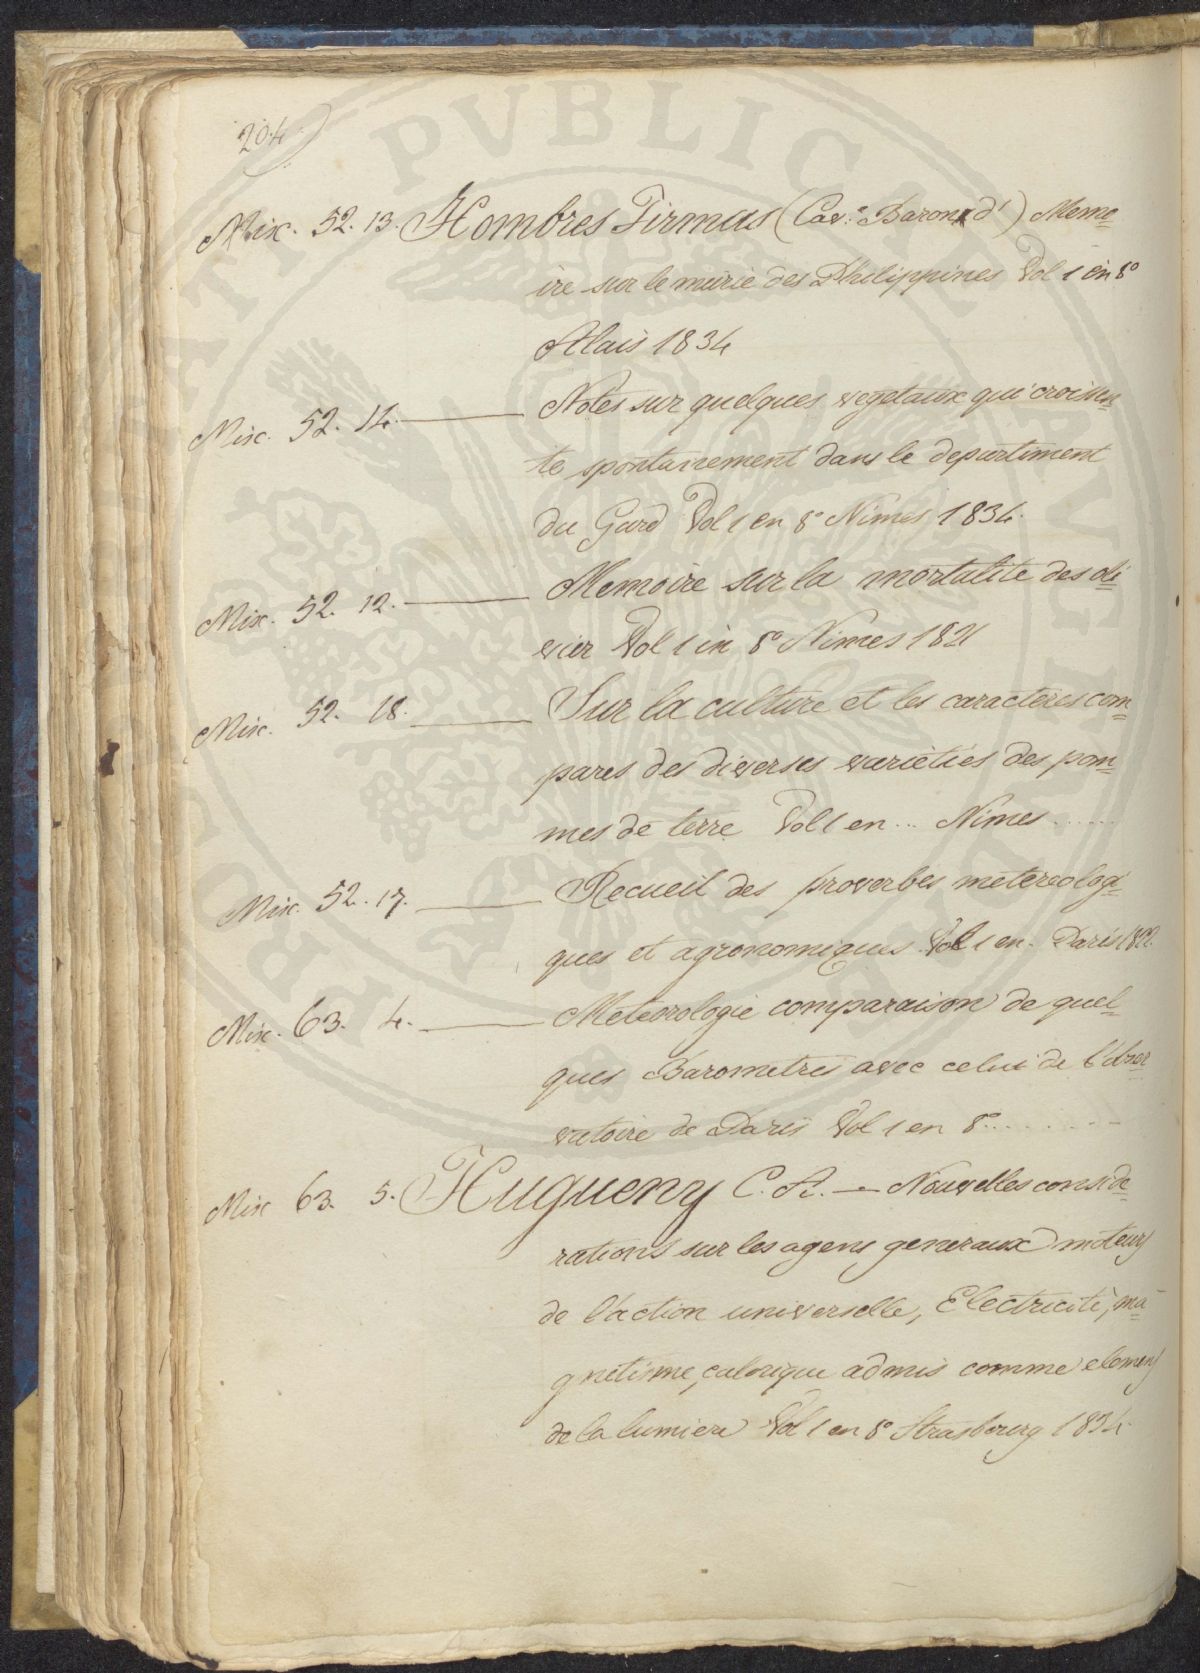 204)
Misc. 52. 13. Hombres Firmas (Cav.e Baron d') Memo=
ire sur le murie des Philippines Vol 1 en 8°
Alais 1834
Misc. 52. 14. —— Notes sur quelques vegetaux qui croissen=
te spontairement dans le departiment
du Gard Vol 1 en 8° Nimes 1834.
Misc. 52. 12. —— Memoire sur la mortalite des oli=
vier Vol 1 in 8° Nimes 1821
Misc. 52. 18. —— Sur la culture et les caracteres com=
pares des diverses varieties des pom=
mes de terre Vol 1 en ... Nimes ......
Misc. 52. 17. —— Recueil des proverbes metereologi=
ques et agronomiques Vol 1 en. Paris 1822.
Misc. 63. 4. —— Meteorologie comparaison de quel=
ques Barometres avec celui de l'obser=
vatoire de Paris Vol 1 en 8° ........
Misc 63. 5. Hugueny C. A. — Nouvelles conside=
rations sur les agens generaux moteurs
de l'action universelle, Electricité, ma=
gnetisme, calorique admis comme elemens
de la lumiere Vol 1 en 8° Strasbourg 1834.
PROBATI PVBLICE